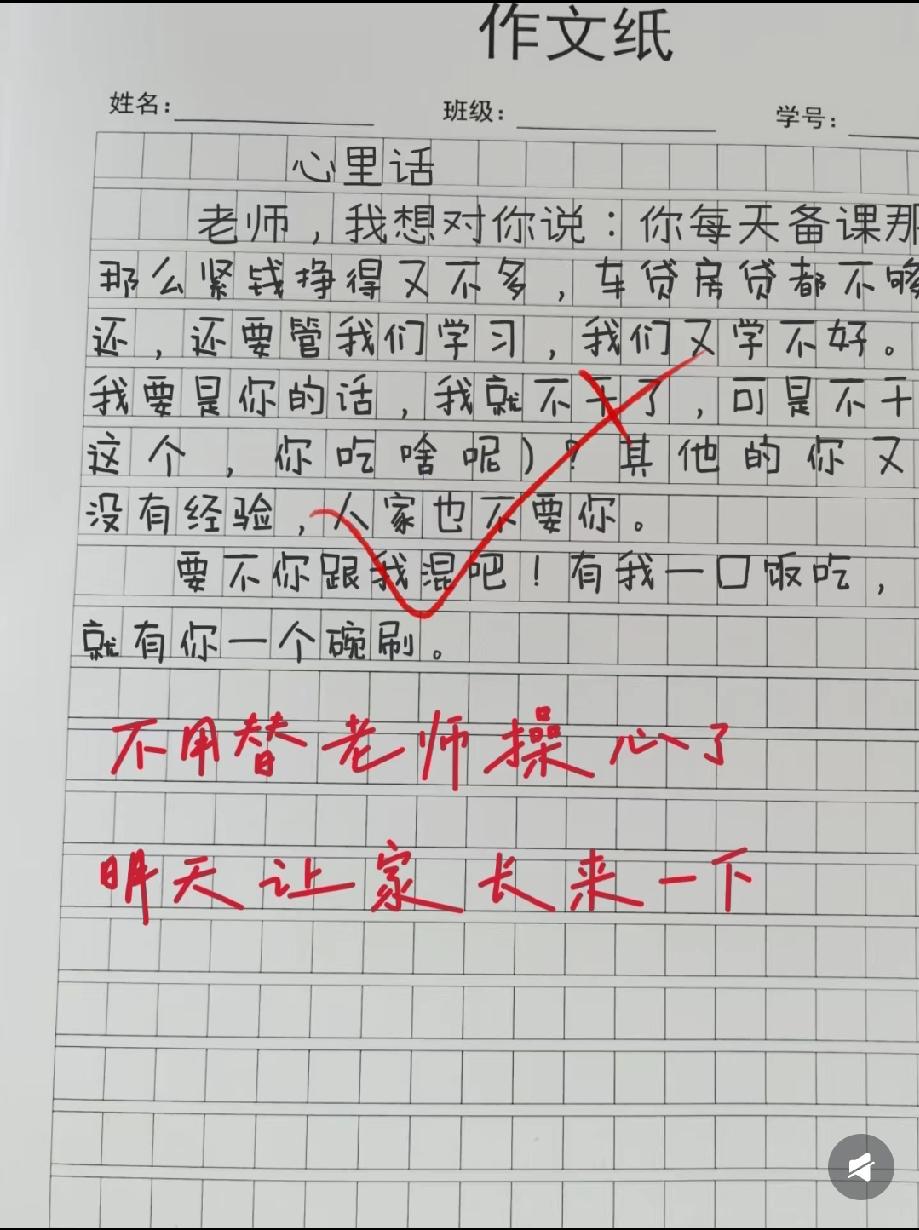 作文纸
姓名： 班级： 学号：
心里话
老师，我想对你说：你每天备课那
那么紧钱挣得又不多，车贷房贷都不够
还，还要管我们学习，我们又学不好。
我要是你的话，我就不干了，可是不干
这个，你吃啥呢）？其他的你又
没有经验，人家也不要你。
要不你跟我混吧！有我一口饭吃，
就有你一个碗刷。
不用替老师操心了
明天让家长来一下